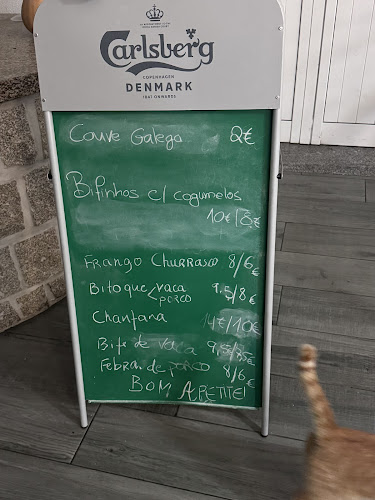 Carlsberg
COPENHAGEN
DENMARK
1847 ONWARDS
Couve Galega 2€
Bifinhos c/ cogumelos
10€/8€
Frango Churrasco 8/6€
Bitoque vaca 9,5/8€
porco
Chanfana 14€/10€
Bife de vaca 9,5/8€
Febra de porco 8/6€
BOM APETITE!